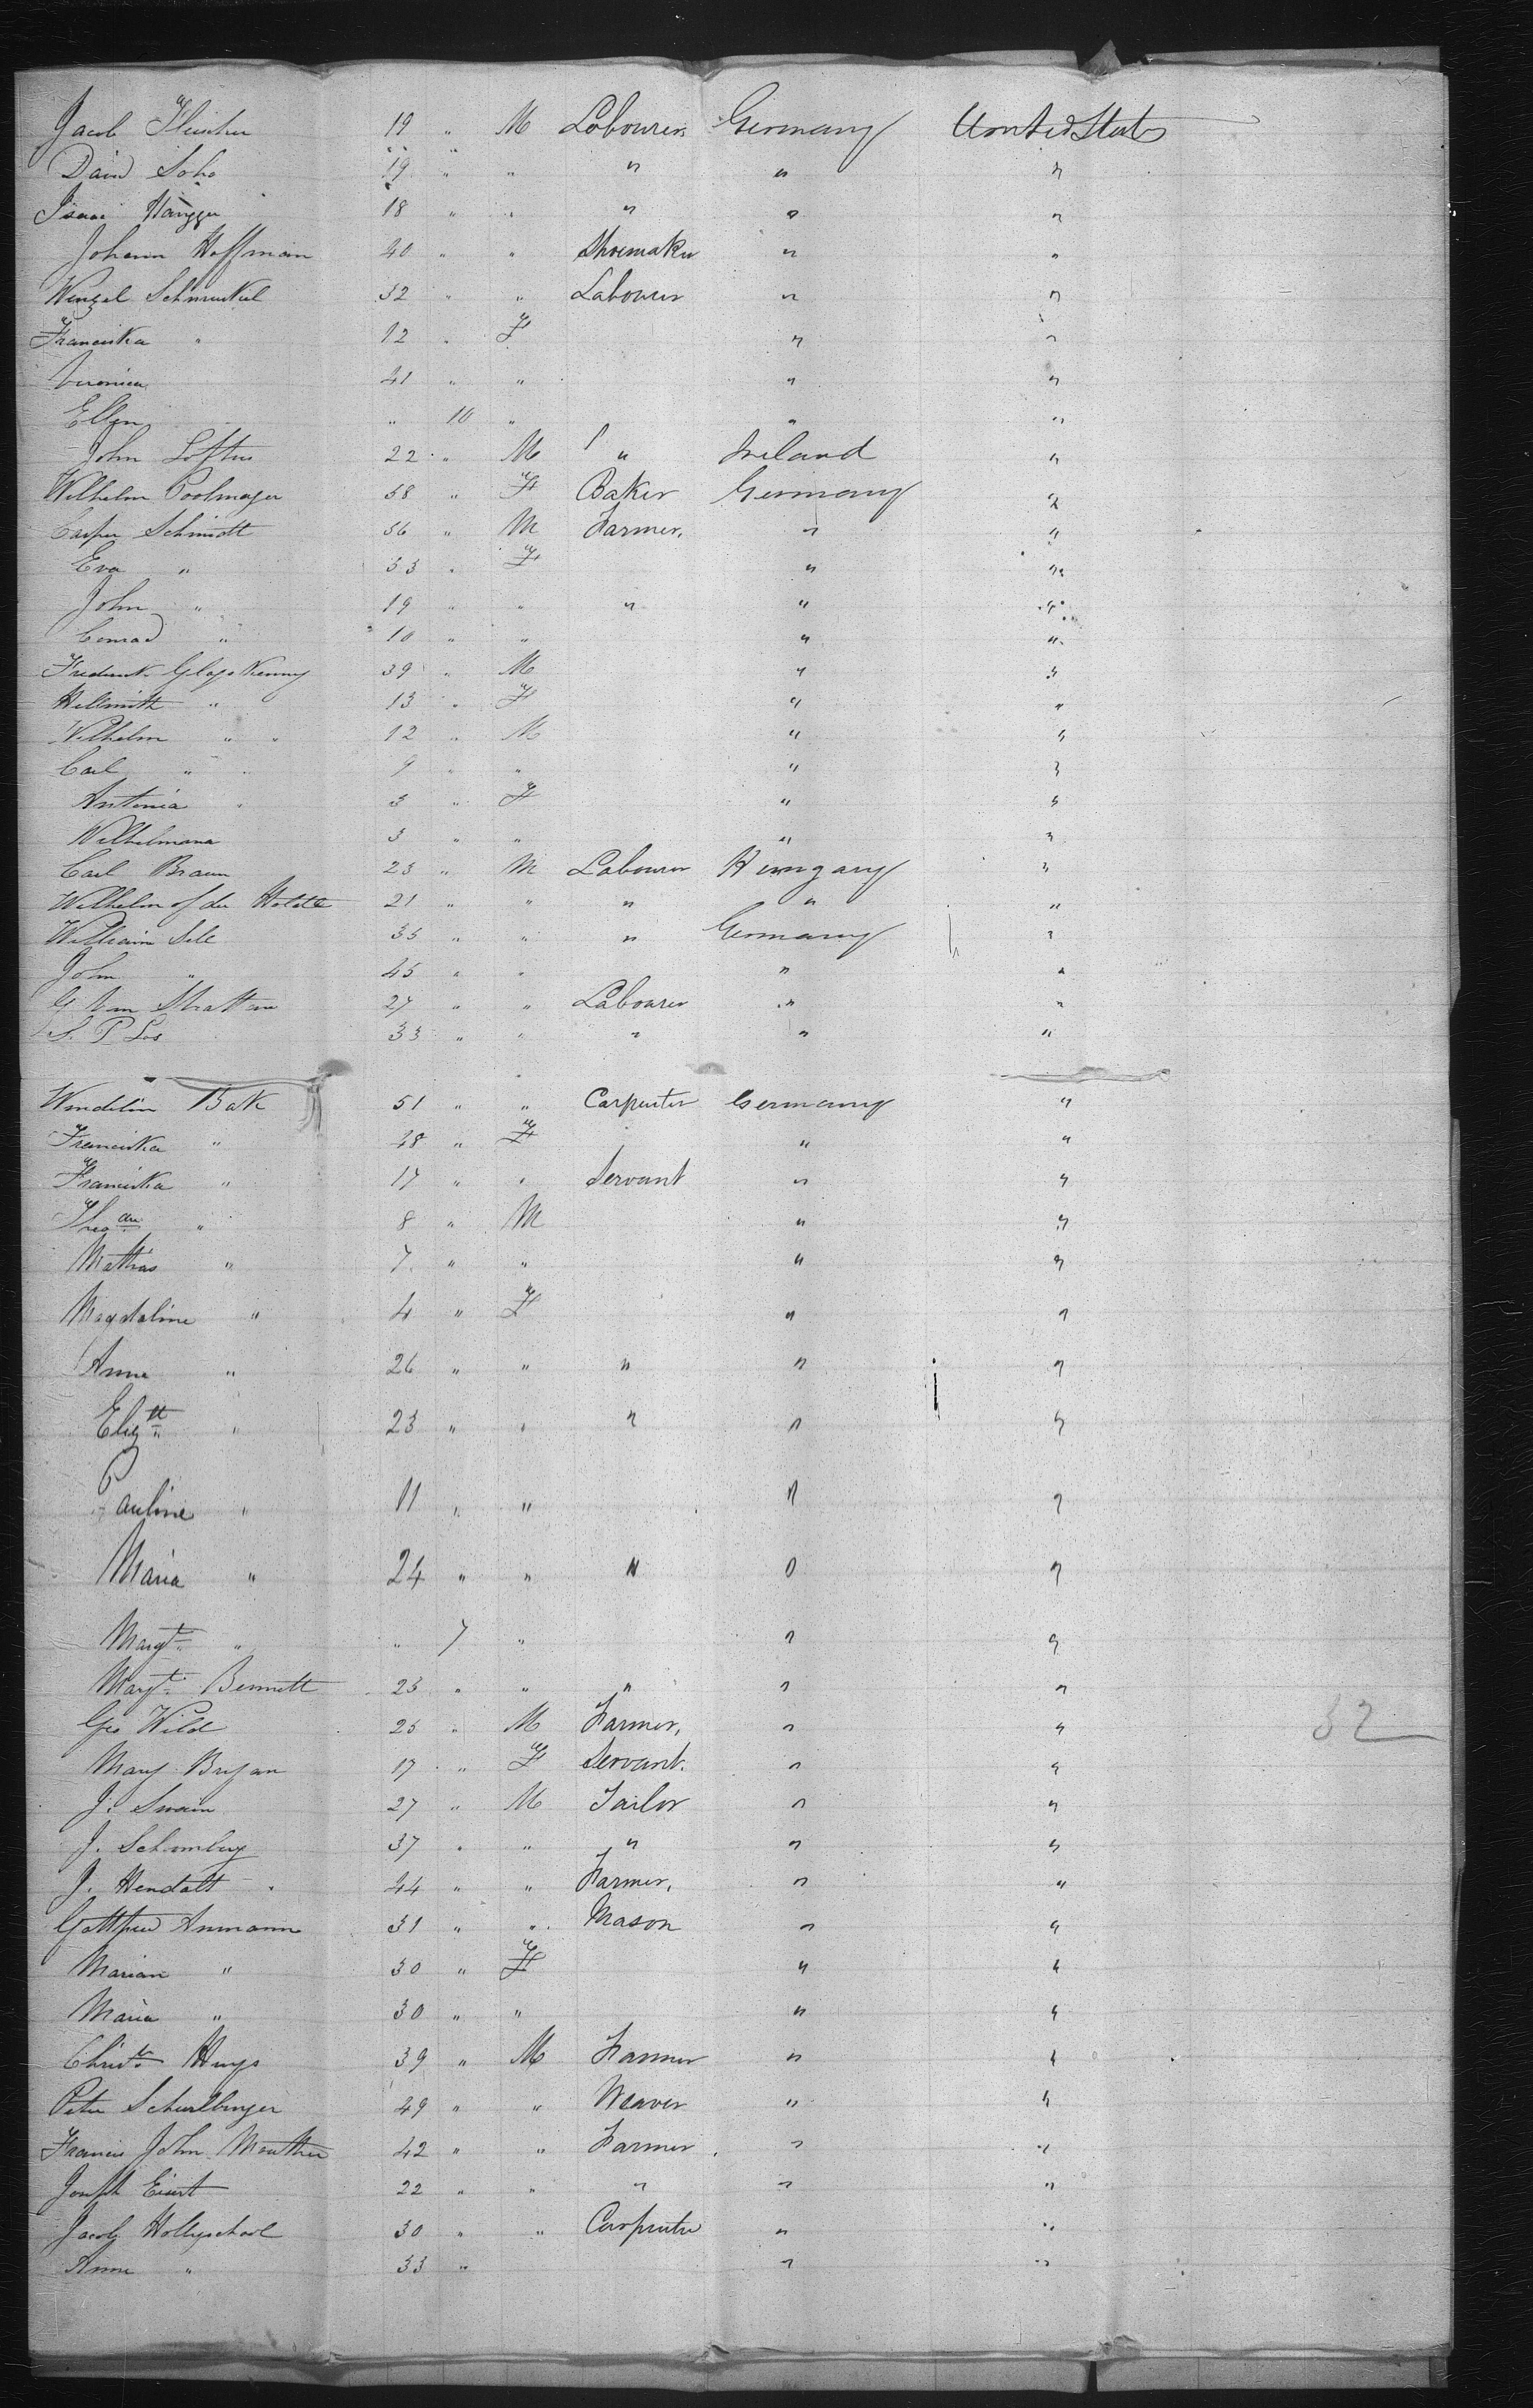 Jacob Fleisher 19 " M Labourer Germany United States
David Soho 19 " " " " "
Isaac 18 " " " " "
Johann Hoffman 40 " " Shoemaker " "
Wenzel 32 " " Labourer " "
Franciska " 12 " F " "
Veronica 41 " " " "
Ellen " 10 " " "
John Loftus 22 " M " Ireland "
Wilhelm Poolmayer 58 " F Baker Germany "
Casper Schmidt 56 " M Farmer. " "
Eva " 53 " F " "
John " 19 " " " " "
Conrad " 10 " " " "
39 " M " "
Hellmith " 13 " F " "
Wilhelm " " 12 " M " "
Carl " 9 " " " "
Antonia " 3 " F " "
Wilhelmana 3 " " " "
Carl Braun 23 " M Labourer Hungary "
Wilhelm of der 21 " " " " "
William Sele 35 " " " Germany "
John " 45 " " " "
G. Van Stratten 27 " " Labourer " "
S. P. Los 33 " " " " "
Wendelin Bak 51 " " Carpenter Germany "
Franciska " 48 " F " "
Franciska " 17 " " Servant " "
" 8 " M " "
Mathias " 7 " " " "
Magdaline " 4 " F " "
Anna " 26 " " " " "
Elizth " 23 " " " " "
Pauline " 11 " " " "
Maria " 24 " " " " "
Margt " " 7 " " "
Margt Bennett 23 " " " " "
Geo Wild 25 " M Farmer, " "
Mary Bryan 17 " F Servant. " "
J. Swain 27 " M Tailor " "
J. Schomburg 37 " " " " "
J. Hendalt 44 " " Farmer, " "
Gottfried Ammann 31 " " Mason " "
Marian " 30 " F " "
Maria " 30 " " " "
Christr Huys 39 " M Farmer " "
Peter 49 " " Weaver " "
Francis John 42 " " Farmer " "
Joseph 22 " " " " "
Jacob 30 " " Carpenter " "
Anna " 33 " " "
32